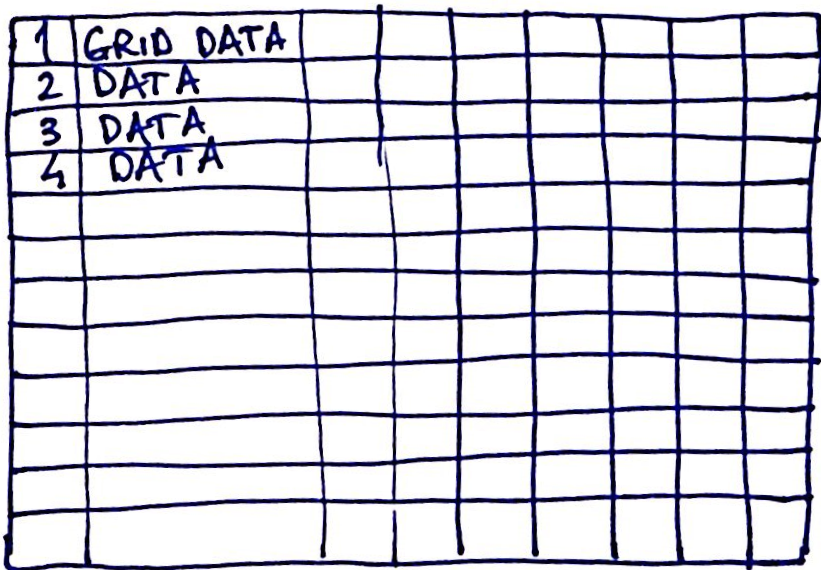 1 GRID DATA
2 DATA
3 DATA
4 DATA